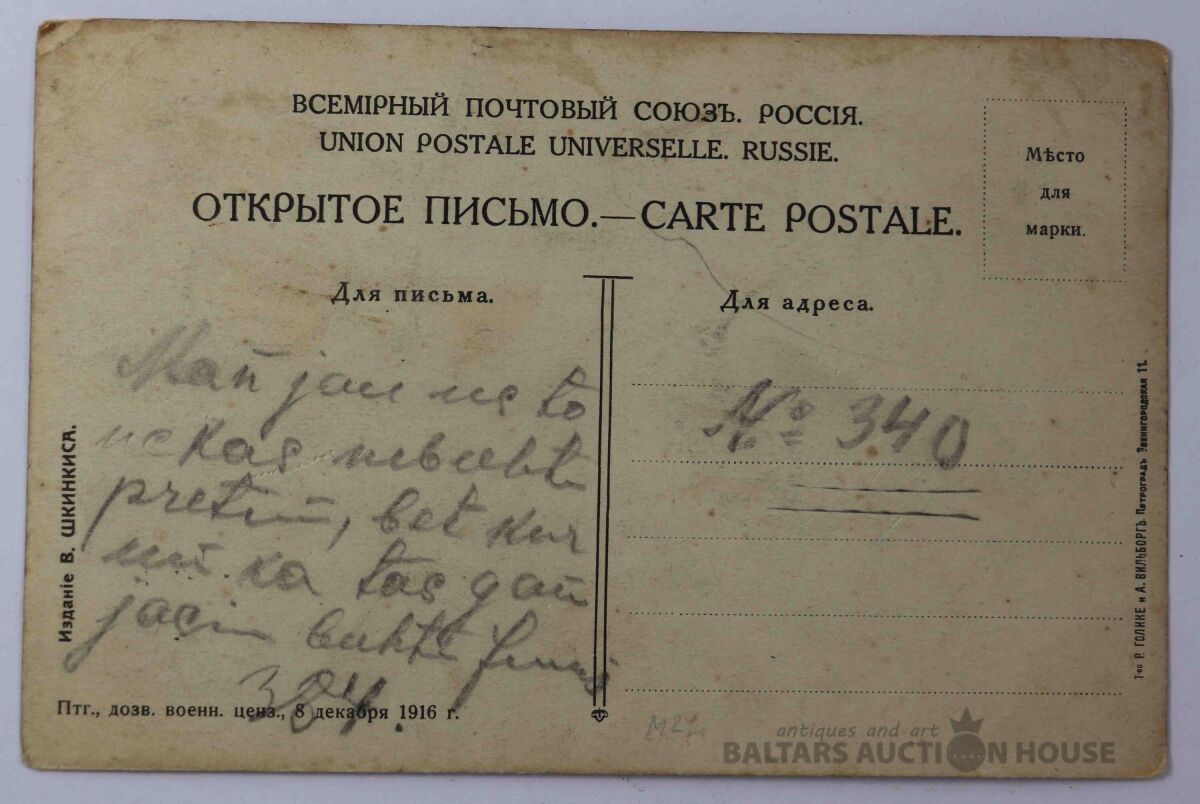 ВСЕМІРНЫЙ ПОЧТОВЫЙ СОЮЗЪ. РОССІЯ.
UNION POSTALE UNIVERSELLE. RUSSIE.
ОТКРЫТОЕ ПИСЬМО.—CARTE POSTALE.
Мѣсто
для
марки.
Для письма.
Man jau ne to
ne kas nebuhtu
pretim, bet kur
ka tas gan
buhtu
384.
Для адреса.
№ 340
Изданіе В. ШКИНКИСА.
Птг., дозв. военн. ценз., 8 декабря 1916 г.
Т-во Р. ГОЛИКЕ и А. ВИЛЬБОРГЪ. Петроградъ Звенигородская 11.
M27.
antiques and art
BALTARS AUCTION HOUSE